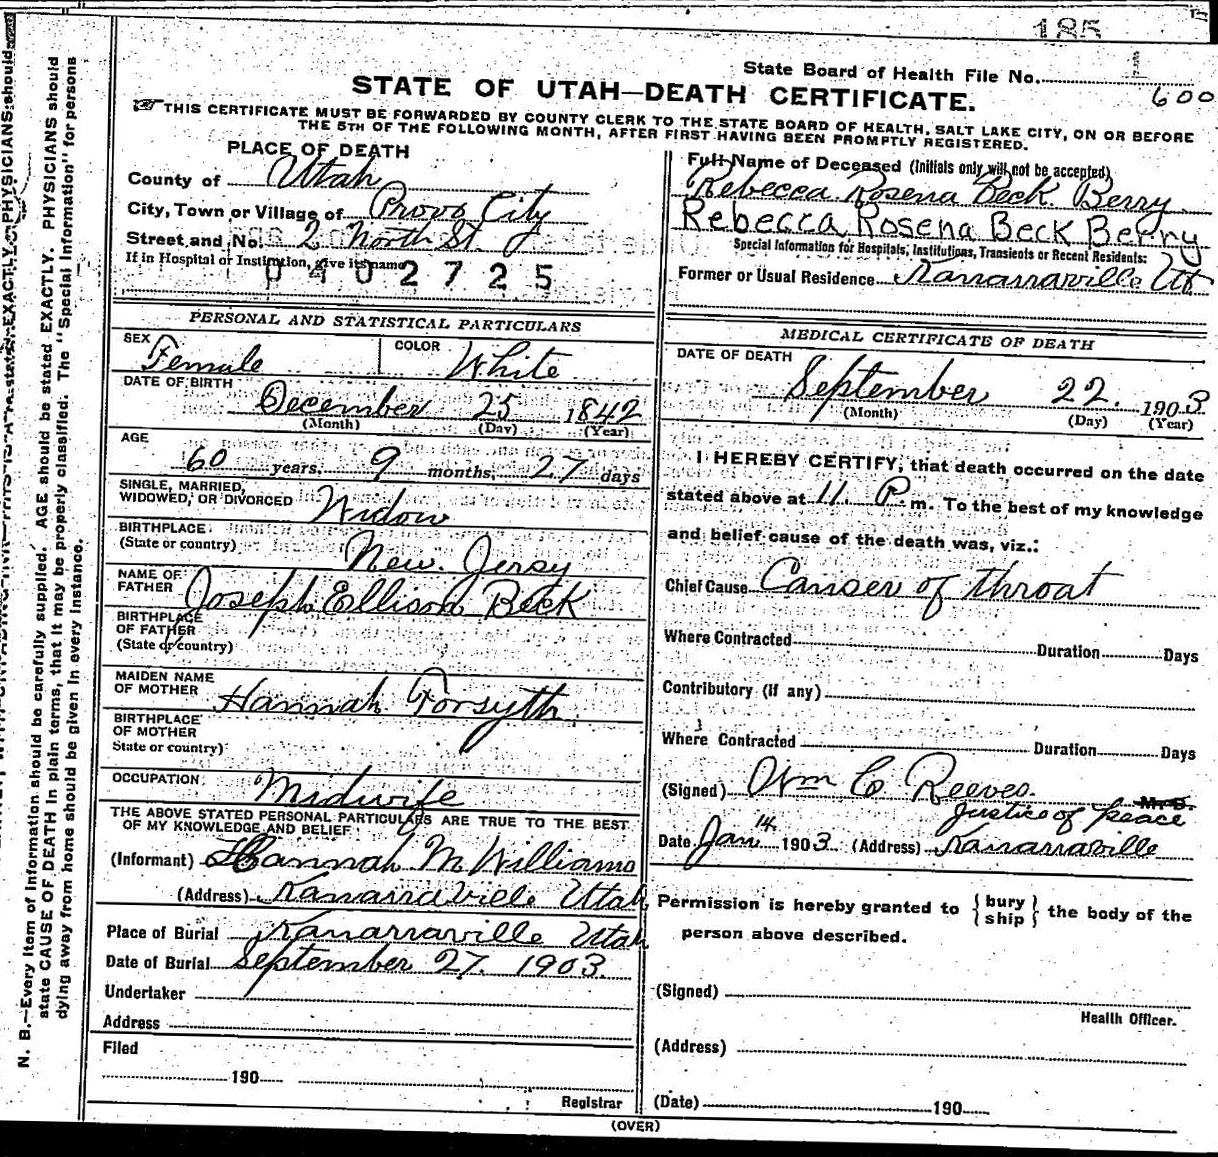 185
State Board of Health File No. 600
STATE OF UTAH—DEATH CERTIFICATE.
THIS CERTIFICATE MUST BE FORWARDED BY COUNTY CLERK TO THE STATE BOARD OF HEALTH, SALT LAKE CITY, ON OR BEFORE
THE 5TH OF THE FOLLOWING MONTH, AFTER FIRST HAVING BEEN PROMPTLY REGISTERED.
PLACE OF DEATH
County of Utah
City, Town or Village of Provo City
Street and No. 2 North St.
If in Hospital or Institution, give its name
0402725
Full Name of Deceased (Initials only will not be accepted)
Rebecca Rosena Beck Berry
Rebecca Rosena Beck Berry
Special Information for Hospitals, Institutions, Transients or Recent Residents:
Former or Usual Residence Kanarraville Ut
PERSONAL AND STATISTICAL PARTICULARS
SEX Female COLOR White
DATE OF BIRTH
December 25 1842
(Month) (Day) (Year)
AGE
60 years, 9 months, 27 days
SINGLE, MARRIED,
WIDOWED, OR DIVORCED Widow
BIRTHPLACE
(State or country) New. Jersy
NAME OF
FATHER Joseph Ellison Beck
BIRTHPLACE
OF FATHER
(State or country)
MAIDEN NAME
OF MOTHER Hannah Forsyth
BIRTHPLACE
OF MOTHER
State or country)
OCCUPATION Midwife
THE ABOVE STATED PERSONAL PARTICULARS ARE TRUE TO THE BEST
OF MY KNOWLEDGE AND BELIEF
(Informant) Hannah M Williams
(Address) Kanarraville Utah
Place of Burial Kanarraville Utah
Date of Burial September 27. 1903.
Undertaker
Address
Filed
190
Registrar
MEDICAL CERTIFICATE OF DEATH
DATE OF DEATH
September 22. 1903
(Month) (Day) (Year)
I HEREBY CERTIFY, that death occurred on the date
stated above at 11. P. m. To the best of my knowledge
and belief cause of the death was, viz.:
Chief Cause Canser of throat
Where Contracted Duration Days
Contributory (if any)
Where Contracted Duration Days
(Signed) Wm C Reeves. M. D.
Justice of peace
Date Jan 14 1903 (Address) Kanarraville
Permission is hereby granted to {bury ship} the body of the
person above described.
(Signed)
Health Officer.
(Address)
(Date) 190
(OVER)
N. B.—Every item of information should be carefully supplied. AGE should be stated EXACTLY. PHYSICIANS should
state CAUSE OF DEATH in plain terms, that it may be properly classified. The "Special Information" for persons
dying away from home should be given in every instance.